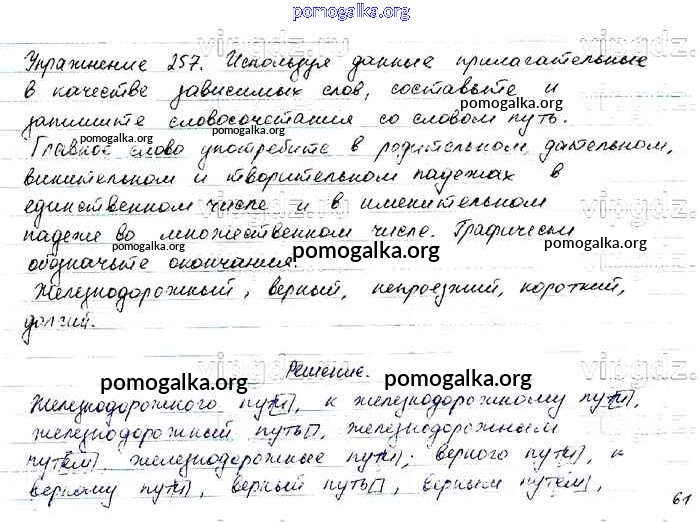 pomogalka.org
Упражнение 257. Используя данные прилагательные
в качестве зависимых слов, составьте и
pomogalka.org
запишите словосочетания со словом путь.
pomogalka.org
Главное слово употребите в родительном, дательном,
винительном и творительном падежах в
единственном числе и в именительном
падеже во множественном числе. Графически
pomogalka.org pomogalka.org pomogalka.org
обозначьте окончания.
Железнодорожный, верный, непроезжий, короткий,
долгий.
vingdz.
Решение.
pomogalka.org pomogalka.org
Железнодорожного пути, к железнодорожному пути,
железнодорожный путь, железнодорожным
путём, железнодорожные пути; верного пути, к
верному пути, верный путь, верным путём,
61